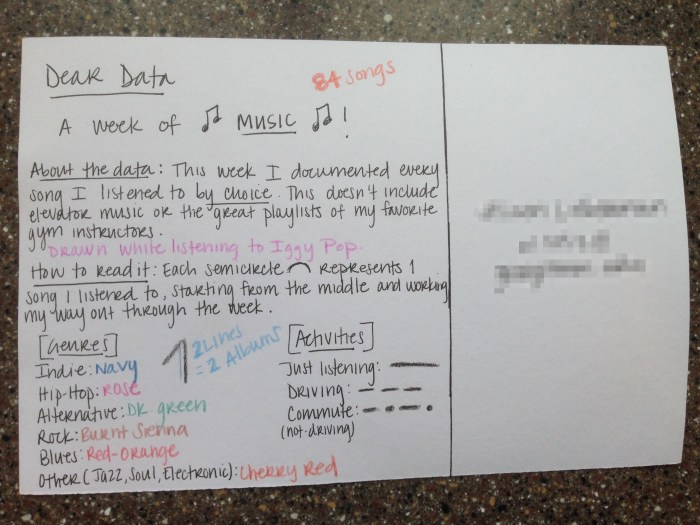 Dear Data
84 songs
A week of ♫ MUSIC ♫!
About the data: This week I documented every
song I listened to by choice. This doesn't include
elevator music or the great playlists of my favorite
gym instructors.
Drawn while listening to Iggy Pop.
How to read it: Each semicircle ⌒ represents 1
song I listened to, starting from the middle and working
my way out through the week.
[Genres]
Indie: Navy
Hip-Hop: Rose
Alternative: Dk. green
Rock: Burnt Sienna
Blues: Red-Orange
Other (Jazz, Soul, Electronic): Cherry Red
2 Lines
= 2 Albums
[Activities]
Just listening:
Driving:
Commute:
(not-driving)